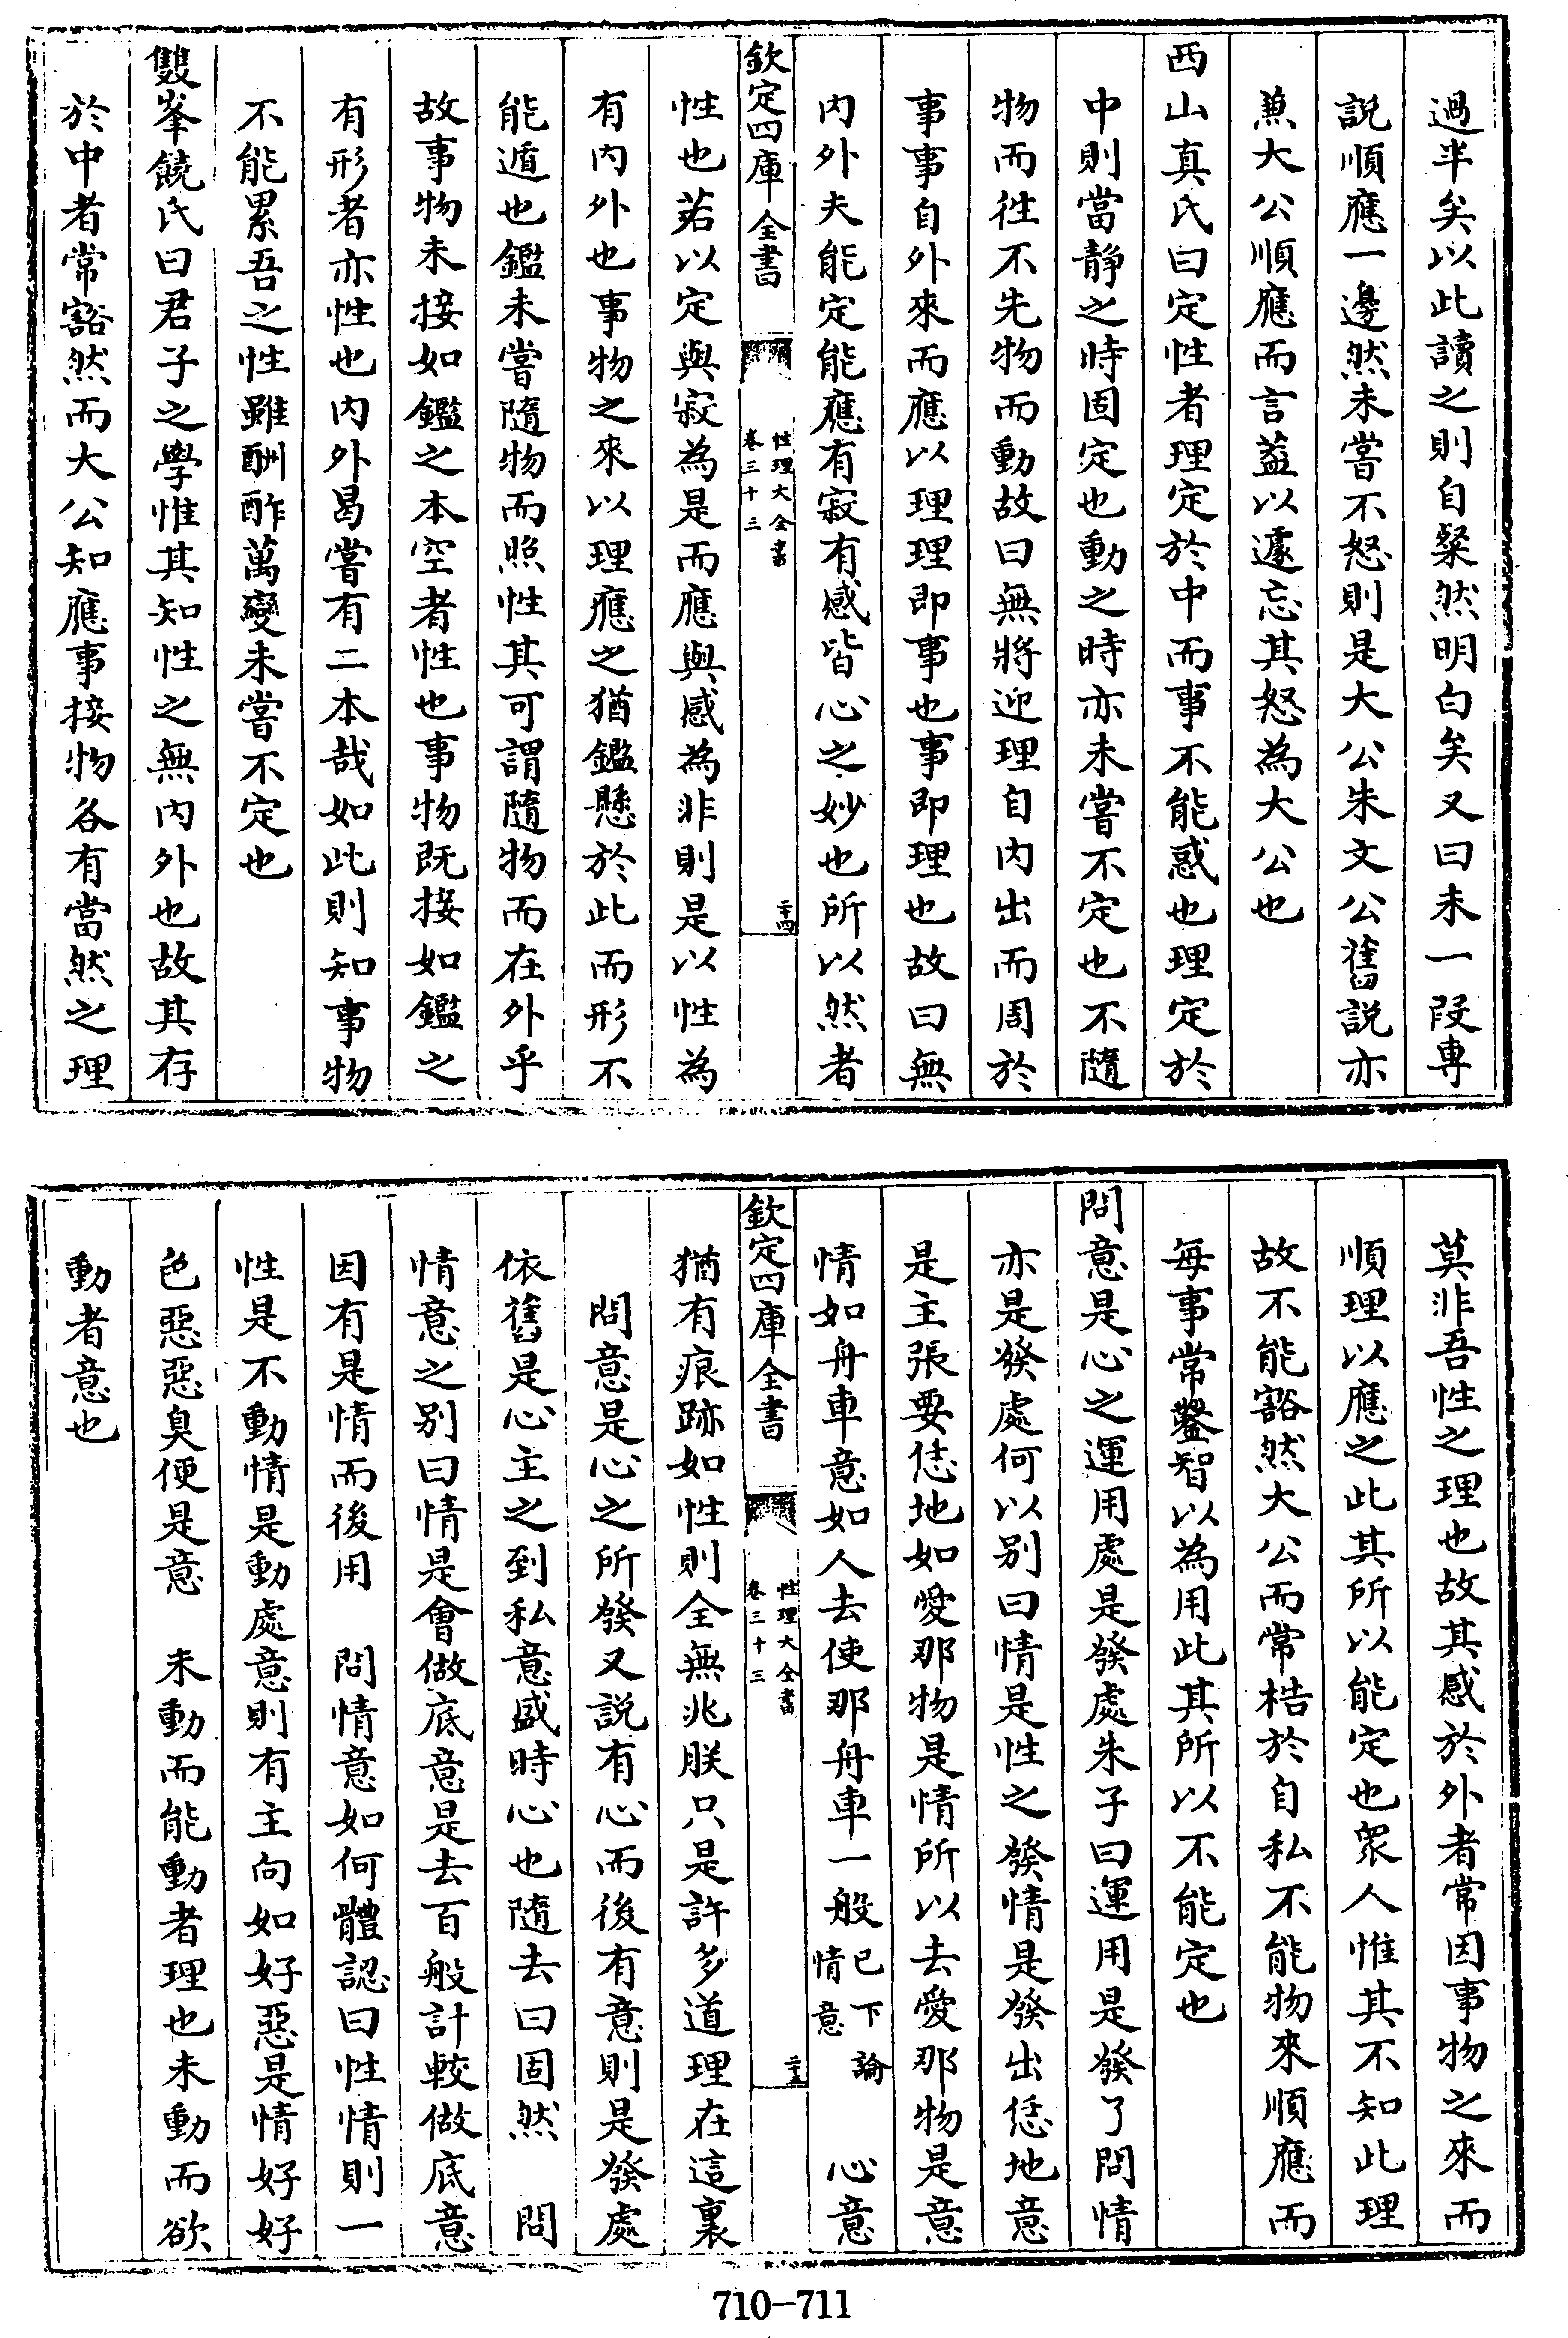 過半矣以此讀之則自粲然明白矣又曰未一段專
說順應一邊然未嘗不怒則是大公朱文公舊說亦
兼大公順應而言葢以遽忘其怒為大公也
西山真氏曰定性者理定於中而事不能惑也理定於
中則當靜之時固定也動之時亦未嘗不定也不隨
物而徃不先物而動故曰無將迎理自内出而周於
事事自外來而應以理理即事也事即理也故曰無
内外夫能定能應有寂有感皆心之妙也所以然者
欽定四庫全書
性理大全書
卷三十三
二十四
性也若以定與寂為是而應與感為非則是以性為
有内外也事物之來以理應之猶鑑懸於此而形不
能遁也鑑未嘗隨物而照性其可謂隨物而在外乎
故事物未接如鑑之本空者性也事物既接如鑑之
有形者亦性也内外曷嘗有二本哉如此則知事物
不能累吾之性雖酬酢萬變未嘗不定也
雙峯饒氏曰君子之學惟其知性之無内外也故其存
於中者常豁然而大公知應事接物各有當然之理
莫非吾性之理也故其感於外者常因事物之來而
順理以應之此其所以能定也衆人惟其不知此理
故不能豁然大公而常梏於自私不能物來順應而
每事常鑿智以為用此其所以不能定也
問意是心之運用處是發處朱子曰運用是發了問情
亦是發處何以别曰情是性之發情是發出恁地意
是主張要恁地如愛那物是情所以去愛那物是意
情如舟車意如人去使那舟車一般已下論情意　心意
欽定四庫全書
性理大全書
卷三十三
二十五
猶有痕跡如性則全無兆朕只是許多道理在這裏
問意是心之所發又説有心而後有意則是發處
依舊是心主之到私意盛時心也隨去曰固然　問
情意之别曰情是會做底意是去百般計較做底意
因有是情而後用　問情意如何體認曰性情則一
性是不動情是動處意則有主向如好惡是情好好
色惡惡臭便是意　未動而能動者理也未動而欲
動者意也
710-711